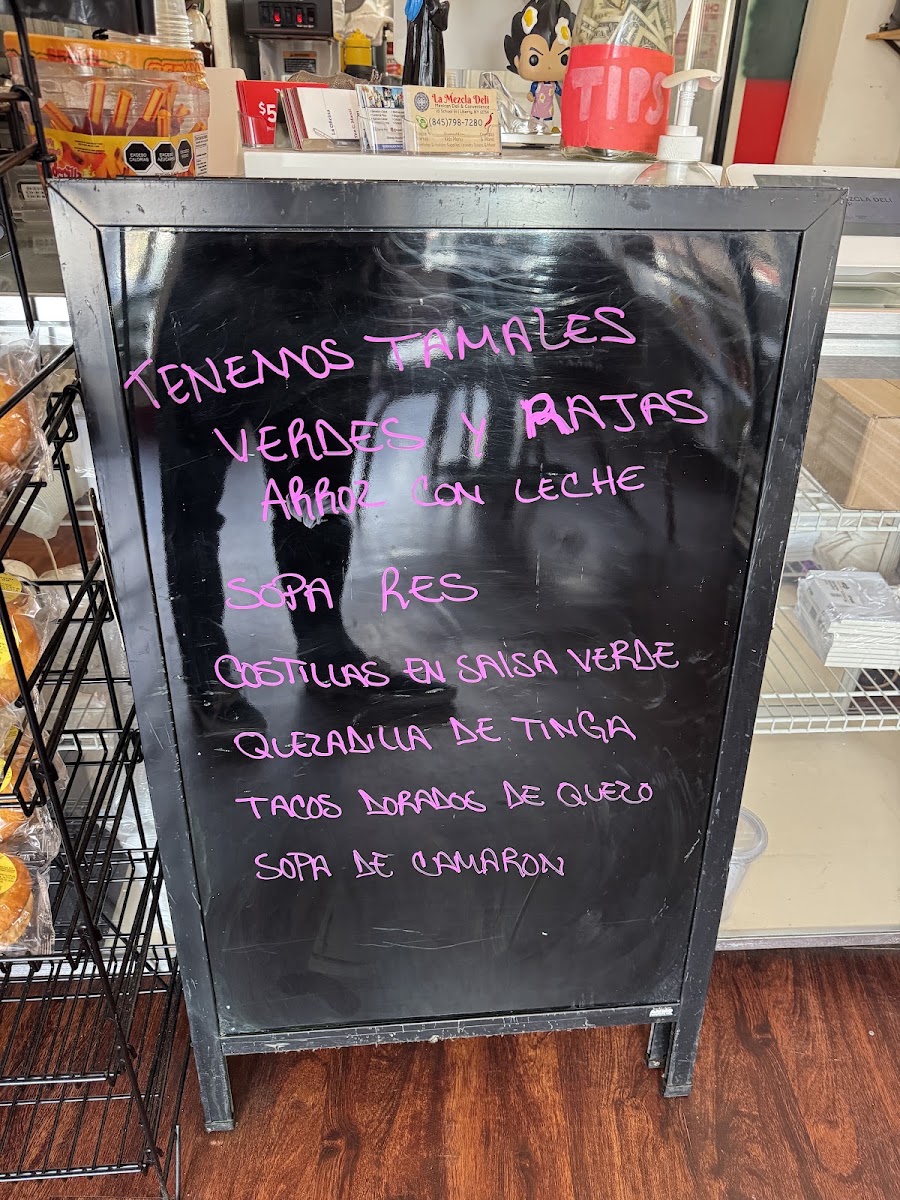 $5
La Mezcla Deli
Mexican Deli & Convenience
(845)798-7280
TIPS
EXCESO CALORÍAS
EXCESO AZÚCARES
TENEMOS TAMALES
VERDES Y RAJAS
ARROZ CON LECHE
SOPA RES
COSTILLAS EN SALSA VERDE
QUEZADILLA DE TINGA
TACOS DORADOS DE QUEZO
SOPA DE CAMARON